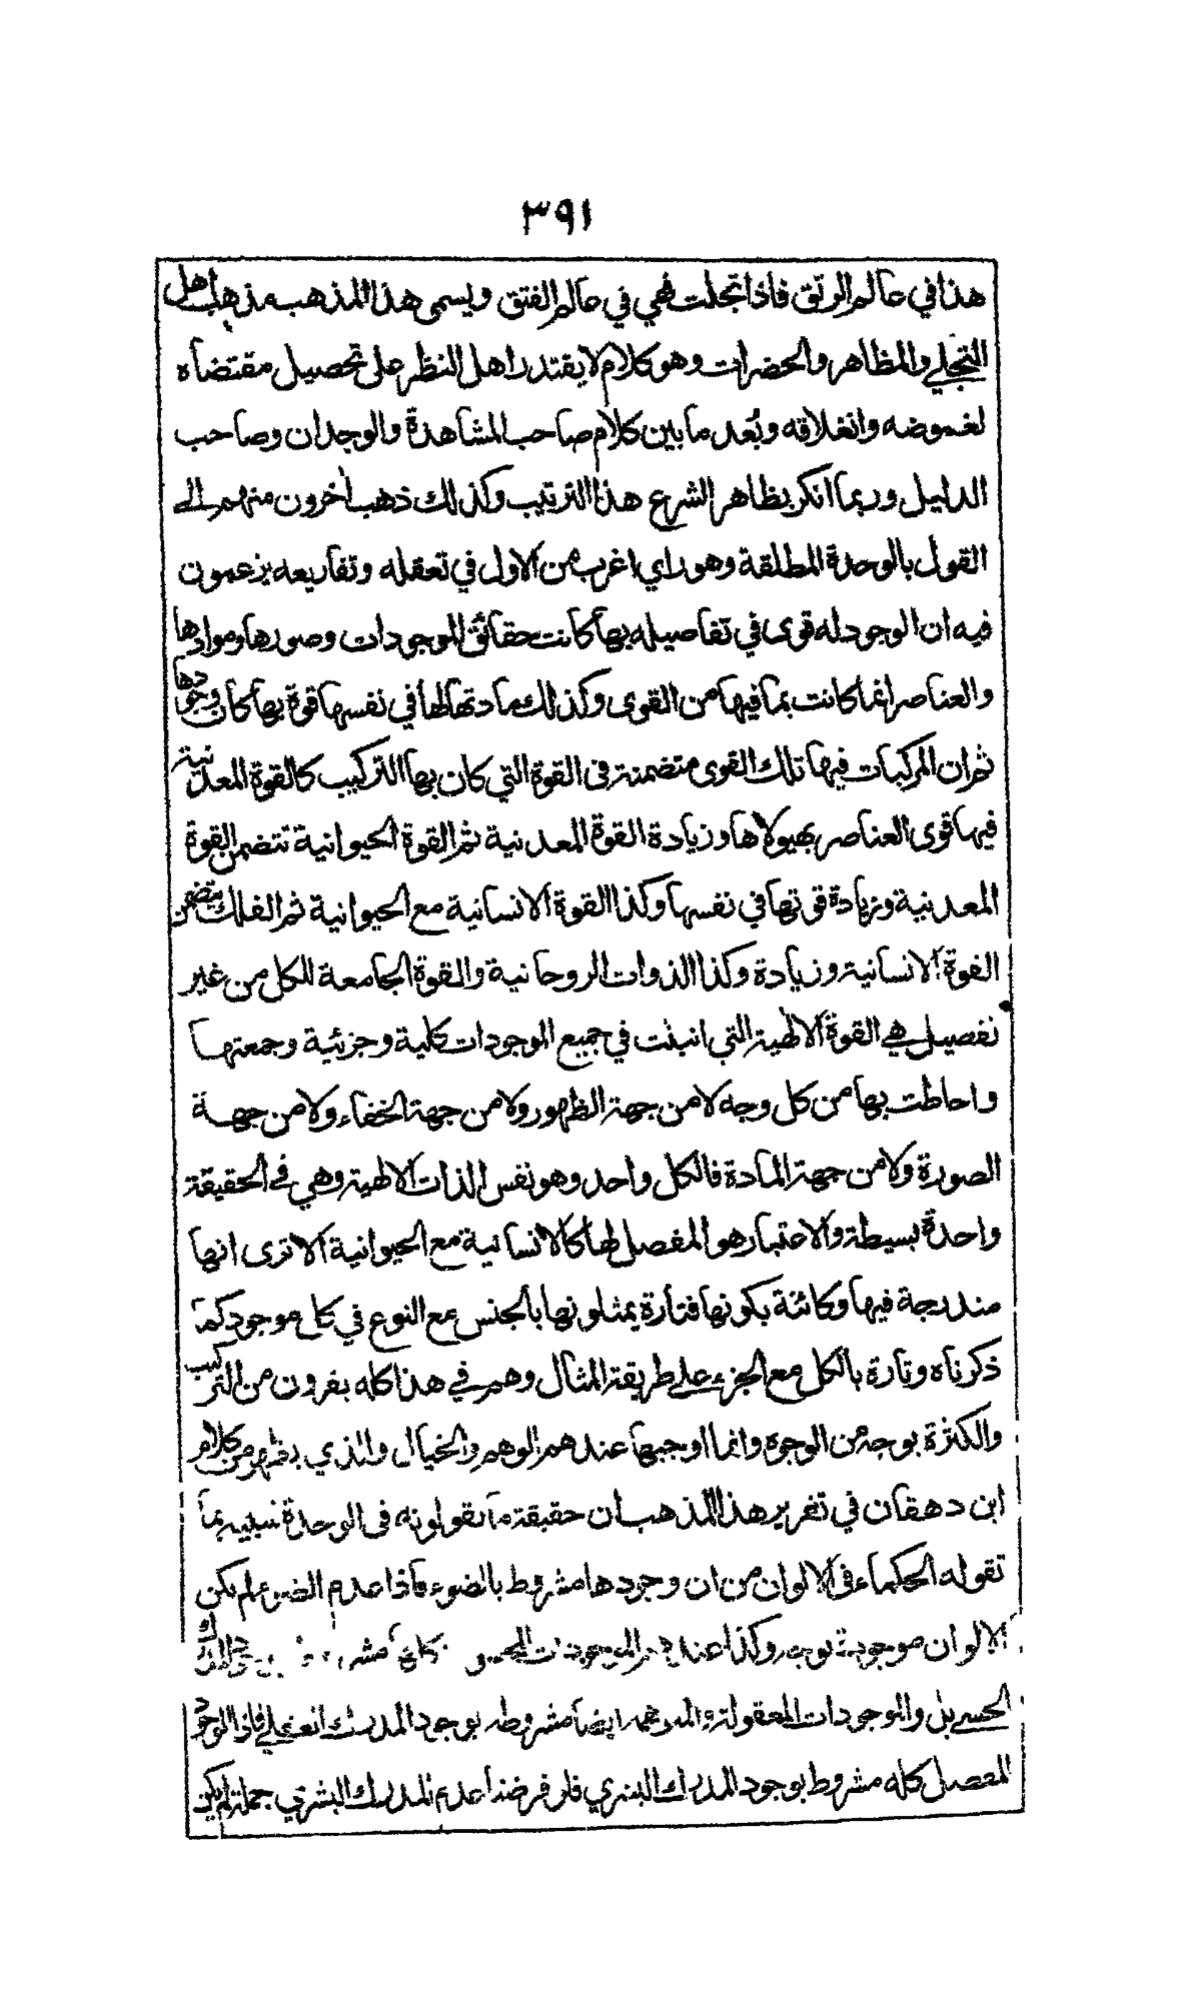 ٣٩١
هذا في عالم الرتق فاذا تجلت فهي في عالم الفتق ويسمى هذا المذهب مذهب اهل
التجلي والمظاهر والحضرات وهو كلام لا يقتدر اهل النظر على تحصيل مقتضاه
لغموضه وانغلاقه وبُعد ما بين كلام صاحب المشاهدة والوجدان وصاحب
الدليل وربما انكر بظاهر الشرع هذا الترتيب وكذلك ذهب اخرون منهم الى
القول بالوحدة المطلقة وهو راي اغرب من الاول في تعقله وتفاريعه يزعمون
فيه ان الوجود له قوى في تفاصيله بها كانت حقائق الموجودات وصورها وموادها
والعناصر انما كانت بما فيها من القوى وكذلك مادتها لها في نفسها قوة بها كان وجودها
ثم ان المركبات فيها تلك القوى متضمنة في القوة التي كان بها التركيب كالقوة المعدنية
فيها قوى العناصر بهيولاها وزيادة القوة المعدنية ثم القوة الحيوانية تتضمن القوة
المعدنية وزيادة قوتها في نفسها وكذا القوة الانسانية مع الحيوانية ثم الفلك يتضمن
القوة الانسانية وزيادة وكذا الذوات الروحانية والقوة الجامعة للكل من غير
تفصيل هي القوة الالهية التي انبثت في جميع الموجودات كلية وجزئية وجمعتها
واحاطت بها من كل وجه لا من جهة الظهور ولا من جهة الخفاء ولا من جهة
الصورة ولا من جهة المادة فالكل واحد وهو نفس الذات الالهية وهي في الحقيقة
واحدة بسيطة والاعتبار هو المفصل لها كالانسانية مع الحيوانية الا ترى انها
مندرجة فيها وكائنة بكونها فتارة يمثلونها بالجنس مع النوع في كل موجود كما
ذكرناه وتارة بالكل مع الجزء على طريقة المثال وهم في هذا كله يفرون من التركيب
والكثرة بوجه من الوجوه وانما اوجبها عندهم الوهم والخيال والذي يظهر من كلام
ابن دهقان في تقرير هذا المذهب ان حقيقة ما يقولونه في الوحدة شبيه بما
تقوله الحكماء في الالوان من ان وجودها مشروط بالضوء فاذا عدم الضوء لم يكن
الالوان موجودة بوجه وكذا عندهم الموجودات المحسو
الحسي بل والموجودات المعقولة والمتوهمة ايضا مشروطة بوجود المدرك العقلي فاذا الوجود
المفصل كله مشروط بوجود المدرك البشري فلو فرضنا عدم المدرك البشري جملة لم يكن